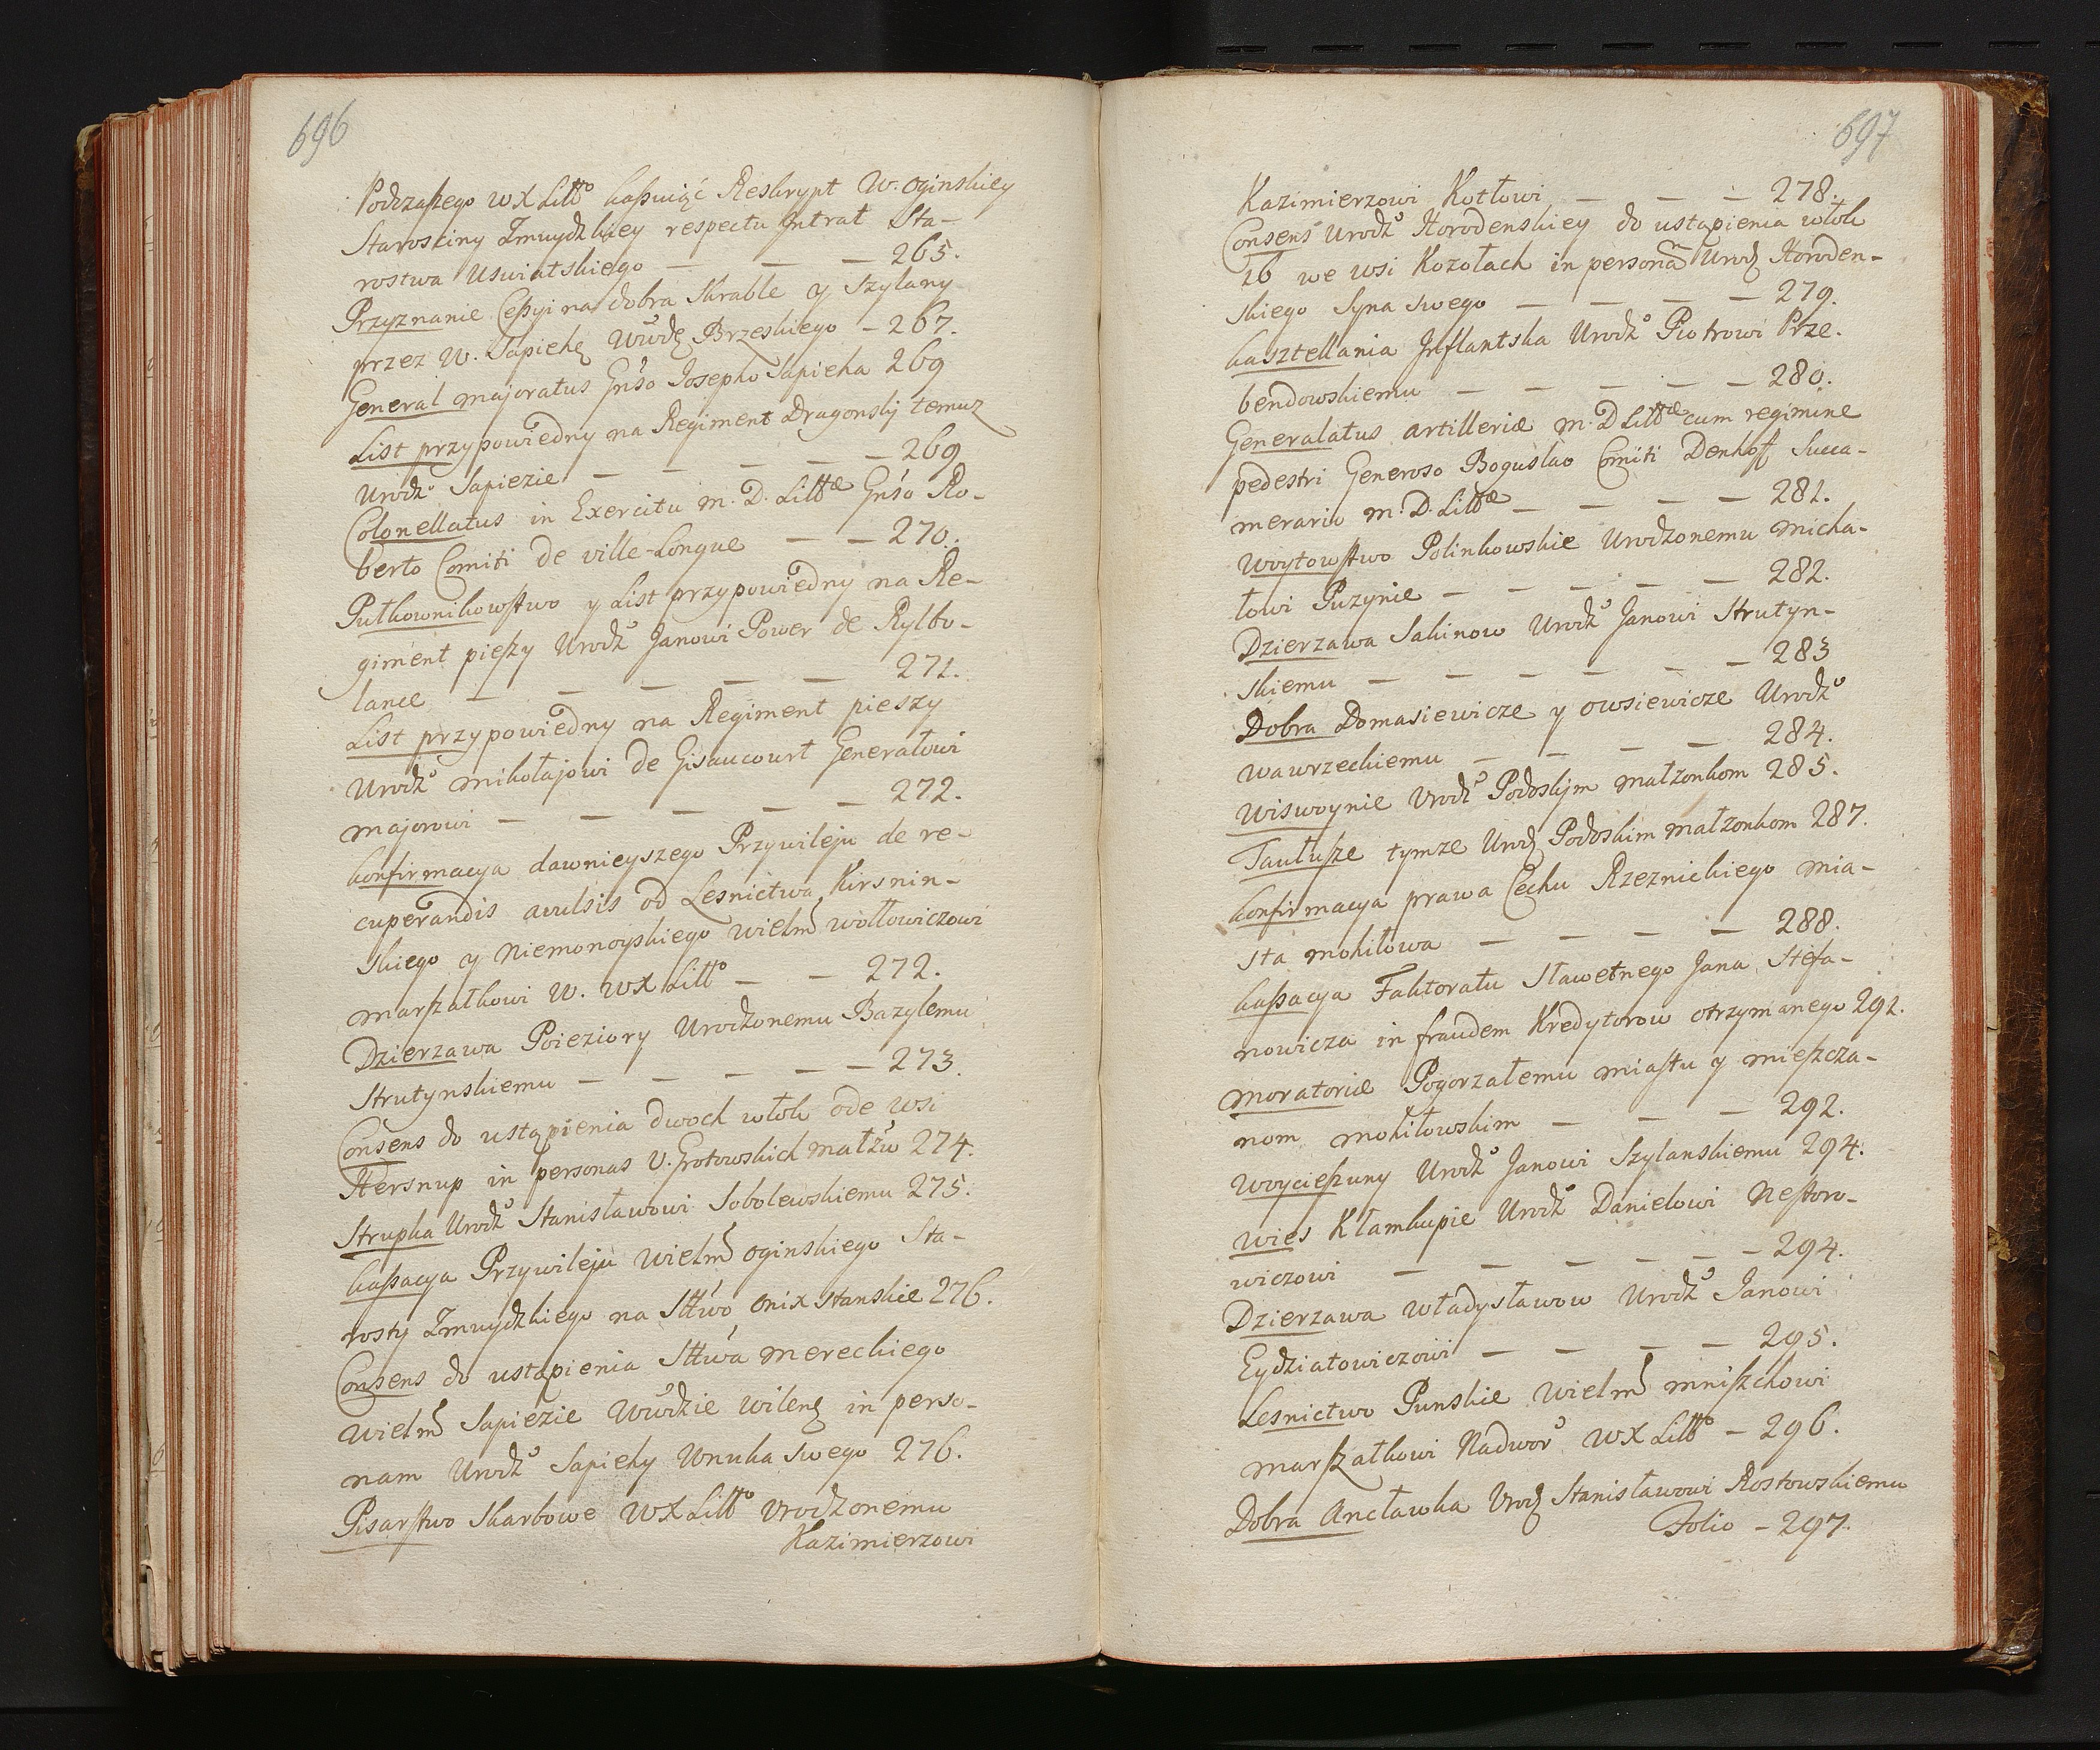 696
Podczaszego WX Litto kassuiąć Reskrypt W. Oginskiey
Starosciny Zmuydzkiey respectu Intrat Sta-
rostwa Uswiatskiego — — — 265.
Przyznanie Cessyi na dobra Skrable y Szylany
przez W. Sapiehę Wwdę Brzeskiego — 267.
General majoratus Gnso Josepho Sapieha 269
List przypowiedny na Regiment Dragonskij temuz
Urodzo Sapiezie — — — — — 269
Colonellatus in Exercitu M. D. Littæ Gnso Ro-
berto Comiti de ville-Longue — — 270.
Pułkownikowstwo y List przypowiedny na Re-
giment pieszy Urodzo Janowi Power de Rylbo-
lance — — — — — 271.
List przypowiedny na Regiment pieszy
Urodzo Mikołajowi de Gisaucourt Generałowi
majorowi — — — — — 272.
Konfirmacya dawnieyszego Przywileju de re-
cuperandis avulsis od Lesnictwa Kirsnin-
skiego y Niemonoyskiego Wielmo Wołłowiczowi
Marszałkowi W. WX Litto — — 272.
Dzierzawa Poieziory Urodzonemu Bazylemu
Strutynskiemu — — — — — 273.
Consens do ustąpienia dwoch włok ode wsi
Hersnup in personas U. Grotowskich małzw 274.
Strupka Urodzo Stanisławowi Sobolewskiemu 275.
Kassacya Przywileju Wielmo Oginskiego Sta-
rosty Zmuydzkiego na Sttwo Onixstanskie 276.
Consens do ustąpienia Sttwa Mereckiego
Wielmo Sapiezie Wwdzie Wilen in perso-
nam Urodzo Sapiehy Wnuka swego 276.
Pisarstwo Skarbowe WX Litto Urodzonemu
Kazimierzowi
697
Kazimierzowi Kotłowi — — — 278.
Consens Urodzo Horodenskiey do ustąpienia włok
16 we wsi Kozołach in personam Urodz Horoden-
skiego Syna swego — — — — 279.
Kasztellania Jnflantska Urodzo Piotrowi Prze-
bendowskiemu — — — — — 280.
Generalatus artilleriæ M. D Littæ cum regimine
pedestri Generoso Boguslao Comiti Denhoff Succa-
merario M. D. Littæ — — — 281.
Woytowstwo Polinkowskie Urodzonemu Micha-
łowi Puzynie — — — — — 282.
Dzierzawa Sakinow Urodzo Janowi Strutyn-
skiemu — — — — — — 283
Dobra Domasiewicze y Owsiewicze Urodzo
Wawrzeckiemu — — — — 284.
Wiswoynie Urodzo Podoskijm małzonkom 285.
Taułusze tymze Urodz Podoskim małzonkom 287.
Konfirmacya prawa Cechu Rzeznickiego mia-
sta Mohilowa — — — — 288.
Kassacya Faktoratu Sławetnego Jana Stefa-
nowicza in fraudem Kredytorow otrzymanego 291.
Moratoriæ Pogorzałemu miastu y mieszcza-
nom mohilowskim — — — 292.
Woycieszuny Urodzo Janowi Szylanskiemu 294.
Wies Kłamkupie Urodzo Danielowi Nestoro-
wiczowi — — — — — — 294.
Dzierzawa Władysławow Urodzo Janowi
Eydziatowiczowi — — — — 295.
Lesnictwo Punskie Wielmo Mniszchowi
Marszałkowi Nadwoo WX Litto — 296.
Dobra Ancławka Urodz Stanisławowi Rostowskiemu
Folio — 297.